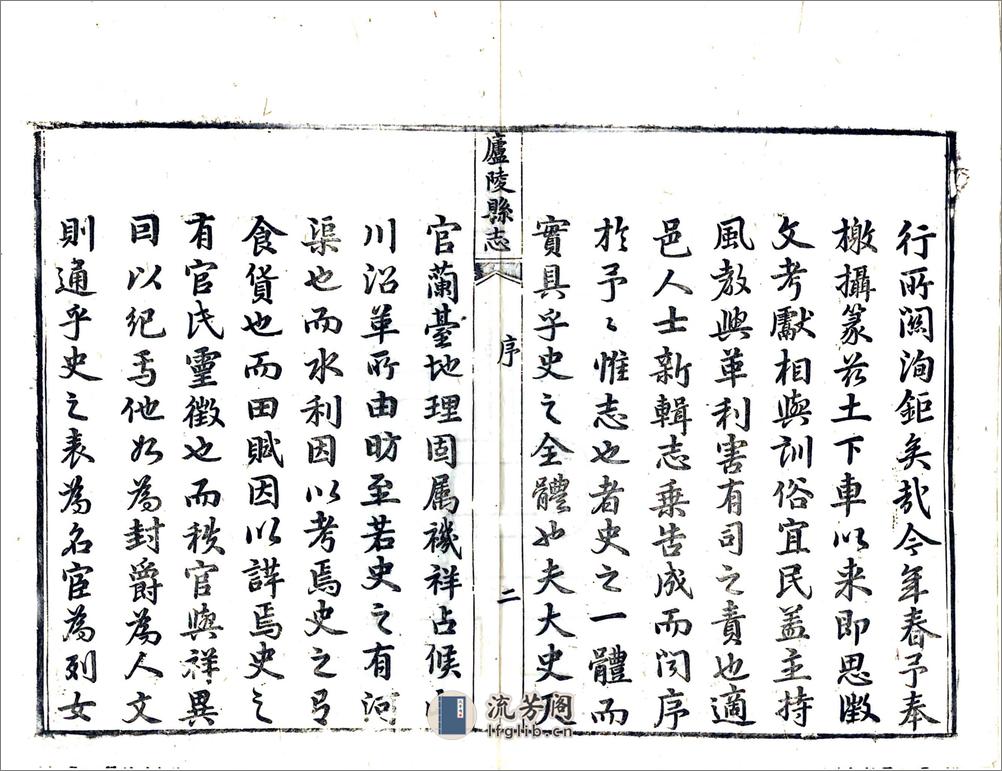 行所關洵鉅矣哉今年春予奉
檄攝篆茲土下車以来即思徵
文考獻相與訓俗宜民盖主持
風教興革利害有司之責也適
邑人士新輯志乗告成而问序
於予〻惟志也者史之一體而
實具乎史之全體也夫大史
廬陵縣志
序
二
官蘭臺地理固属禨祥占候
川沿革所由昉至若史之有河
渠也而水利因以考焉史之
食貨也而田賦因以詳焉史之
有官氏靈徵也而秩官與祥異
囙以纪焉他如為封爵為人文
則通乎史之表為名宦為列女
流芳阁
lfglib.cn